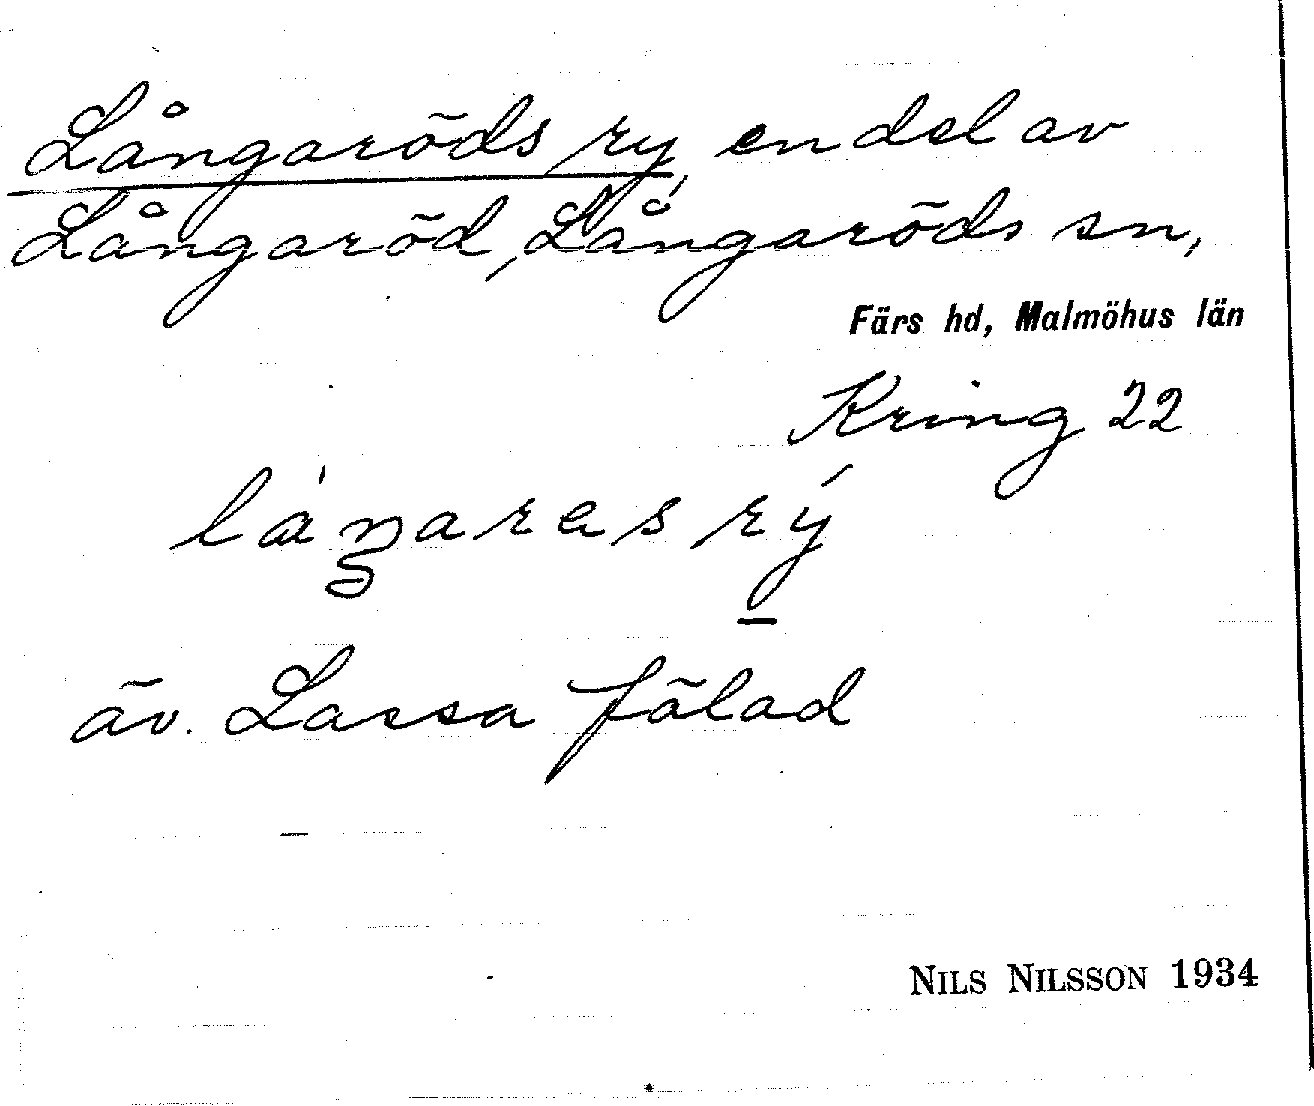 Långaröds ry, en del av
Långaröd, Långaröds sn,
Färs hd, Malmöhus län
Kring 22
lá᾽ŋarasrý
äv. Lassa fälad
NILS NILSSON 1934